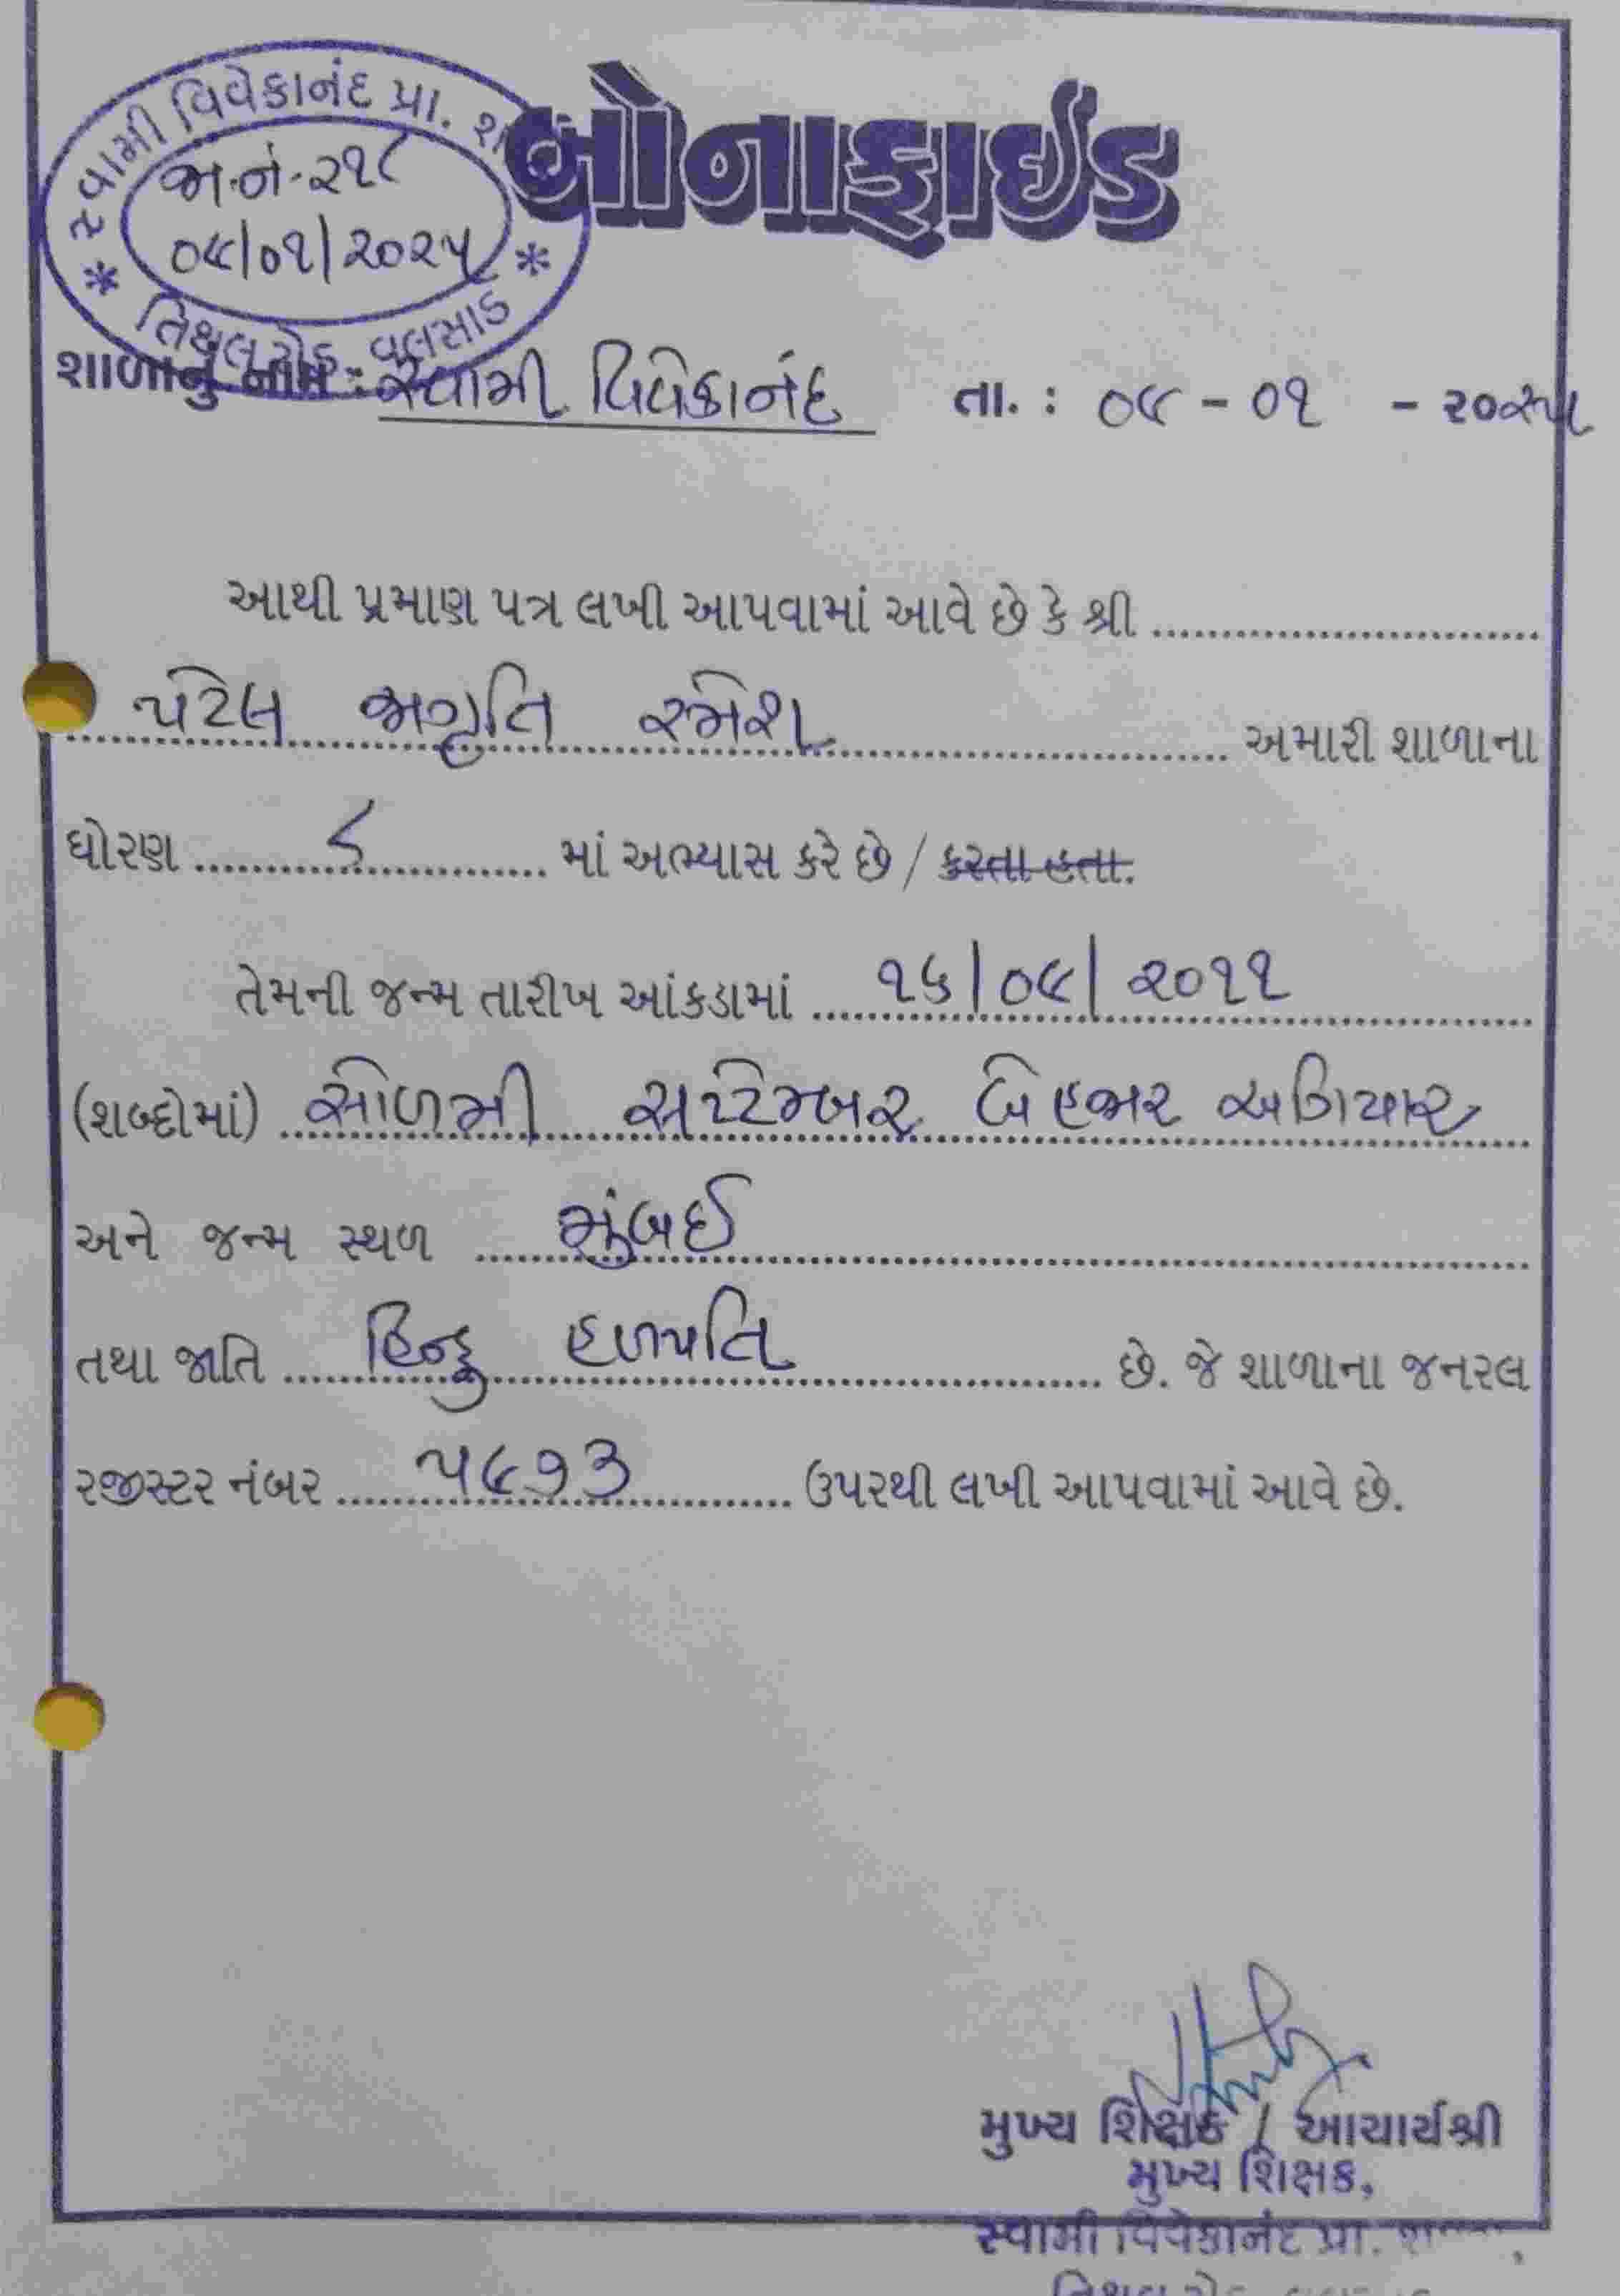 સ્વામી વિવેકાનંદ પ્રા. શા
જા.નં.-૨૧૮
૦૯/૦૧/૨૦૨૫
* તિથલ રોડ, વલસાડ *
બોનાફાઈડ
શાળાનું નામ : સ્વામી વિવેકાનંદ તા. : ૦૯ - ૦૧ - ૨૦૨૫
આથી પ્રમાણ પત્ર લખી આપવામાં આવે છે કે શ્રી
પટેલ જાગૃતિ રમેશ અમારી શાળાના
ધોરણ ૮ માં અભ્યાસ કરે છે / કરતા હતા.
તેમની જન્મ તારીખ આંકડામાં ૧૬/૦૯/૨૦૧૧
(શબ્દોમાં) સોળમી સપ્ટેમ્બર બે હજાર અગિયાર
અને જન્મ સ્થળ મુંબઈ
તથા જાતિ હિન્દુ હળપતિ છે. જે શાળાના જનરલ
રજીસ્ટર નંબર ૫૯૭૩ ઉપરથી લખી આપવામાં આવે છે.
મુખ્ય શિક્ષક / આચાર્યશ્રી
મુખ્ય શિક્ષક,
સ્વામી વિવેકાનંદ પ્રા.